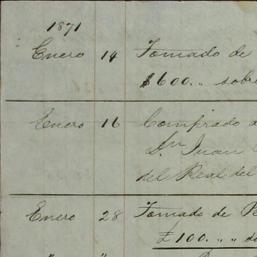 1871
Enero 14 Tomado de
$600.,, sobre
Enero 16 Comprado a
Dn Juan
del Real del
Enero 28 Tomado de
£100.,,,,